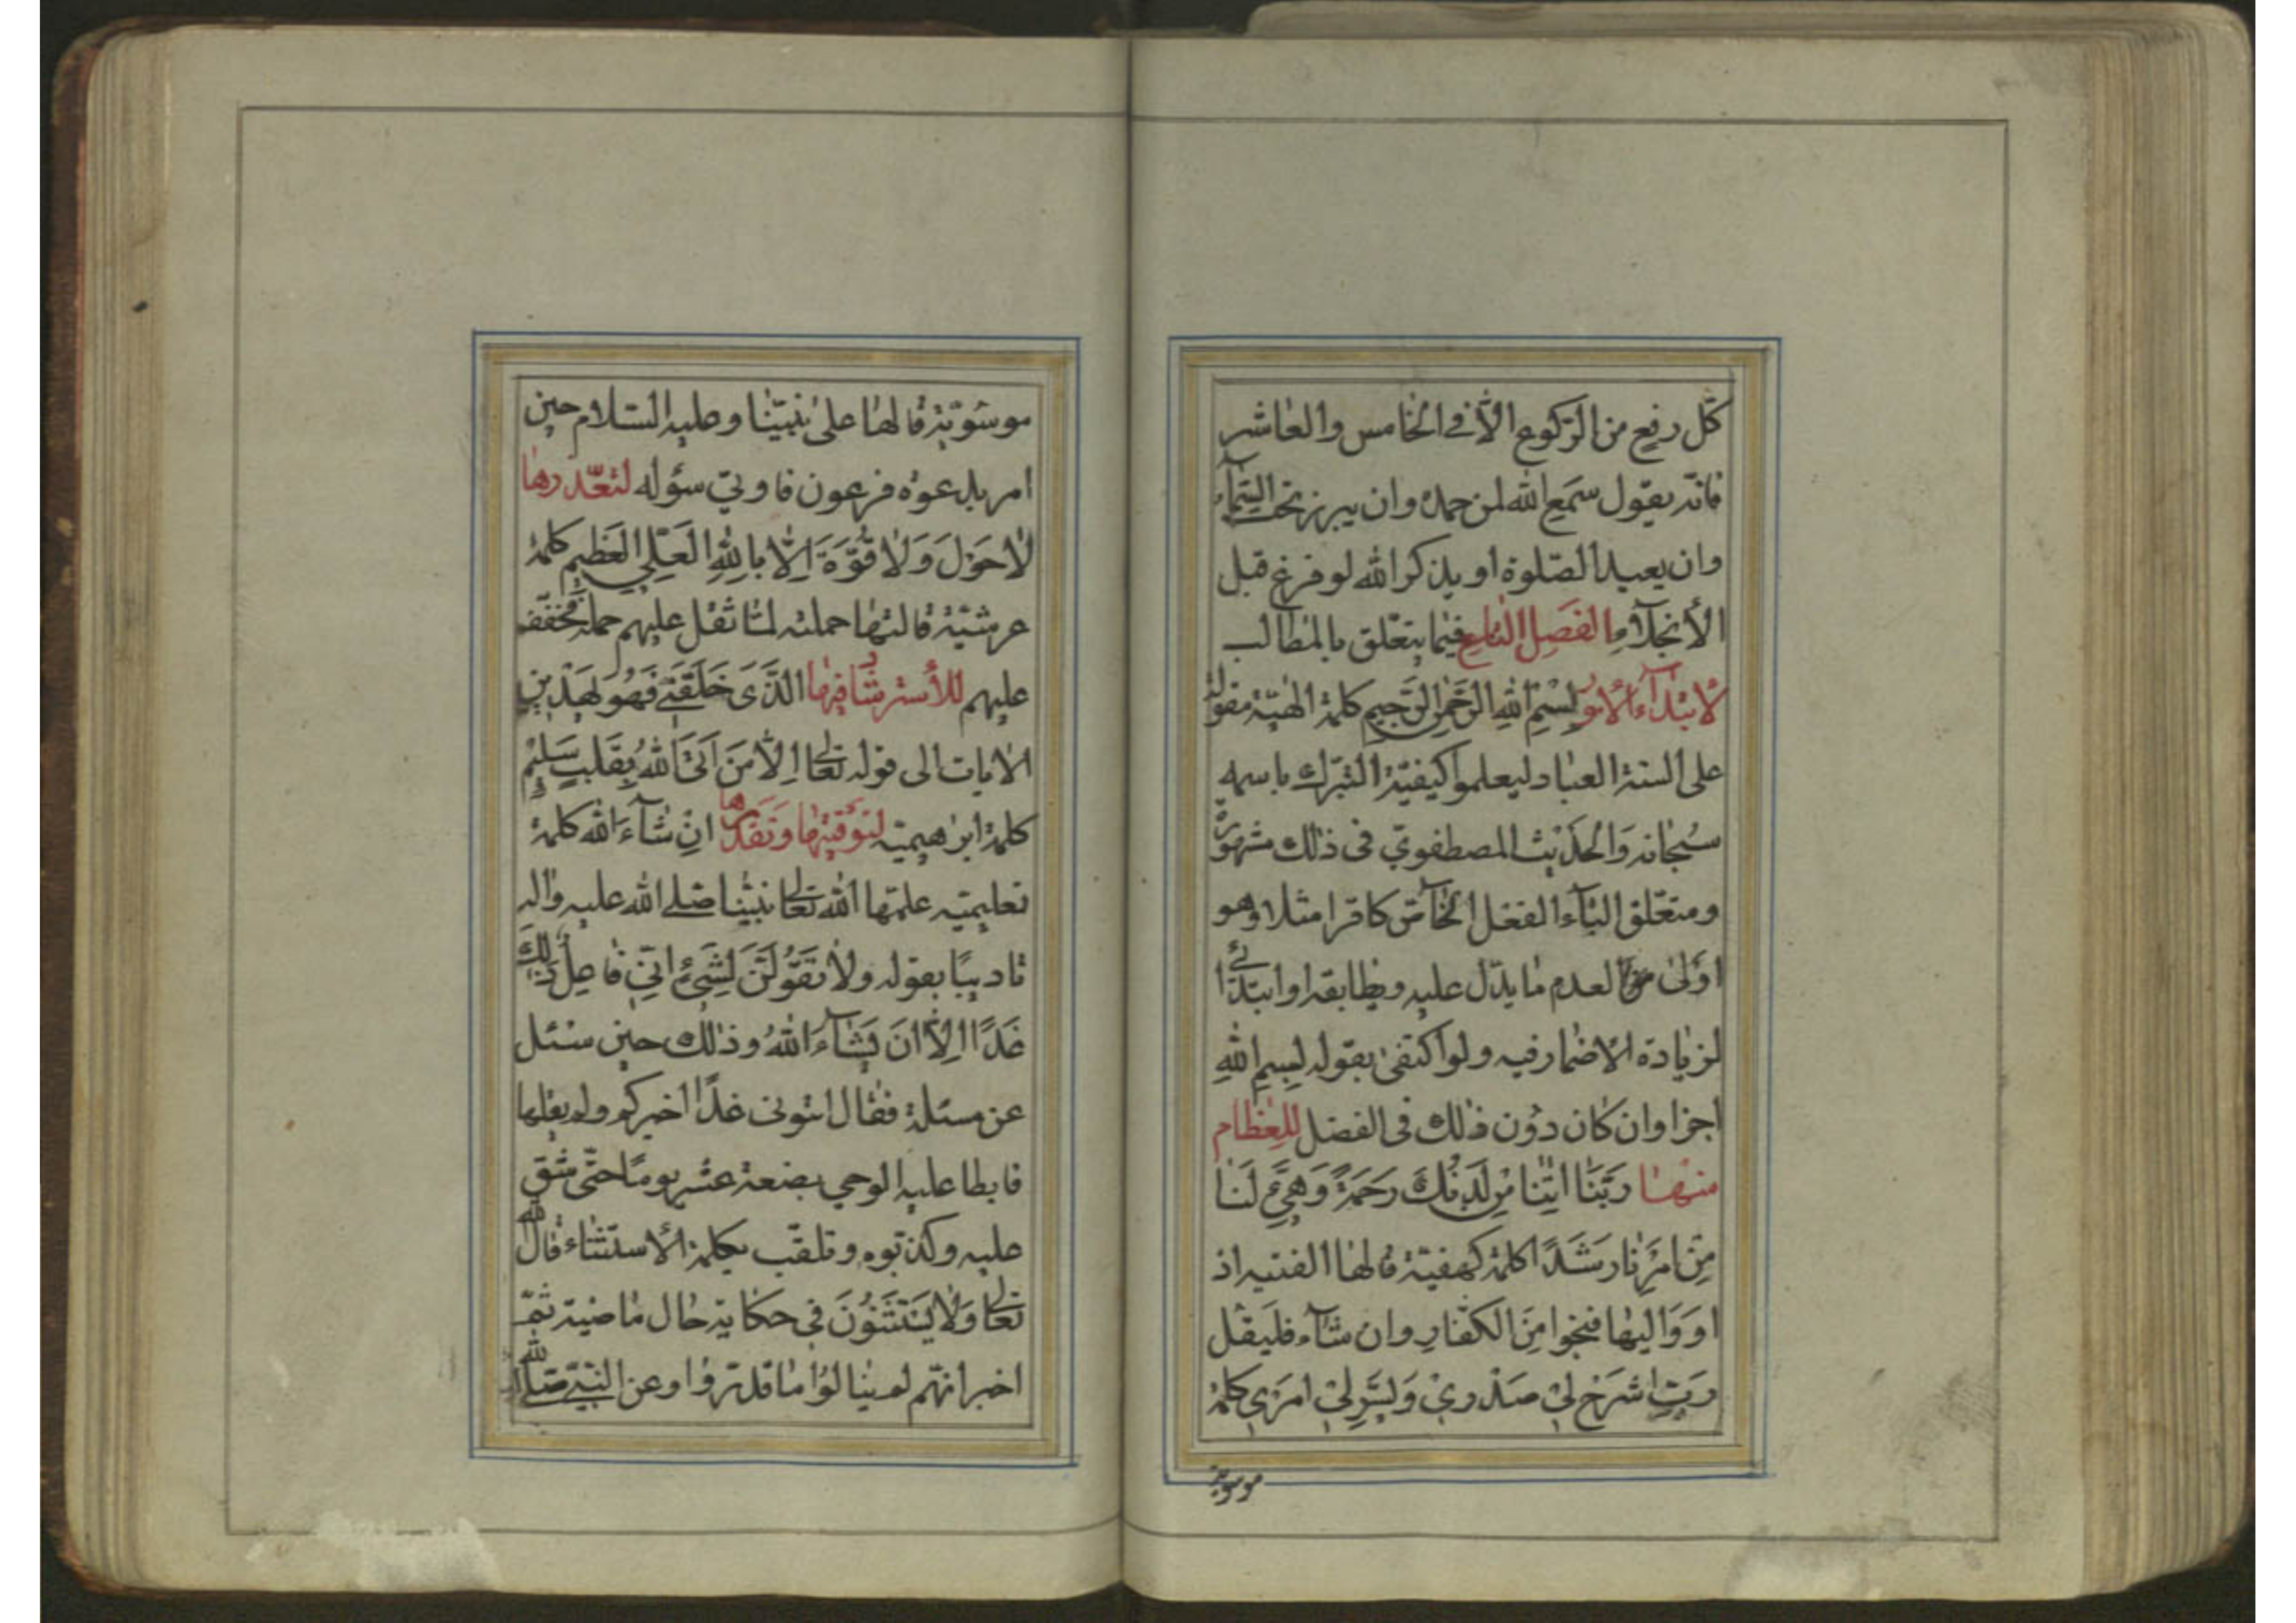 كلّ رفع من الركوع الّا في الخامس والعاشر
فانّه يقول سَمِعَ الله لمن حمده وان يبرز تحت السّمآء
وان يعيد الصّلوة او يذكر الله لو فرغ قبل
الأنجلآء الفَصل التاسع فيما يتعلّق بالمطالب
لأبتدآء الأمور بسْمِ اللهِ الرَّحمٰنِ الرَّحيمِ كلمة الهٰيّة مقولة
على السنة العباد ليعلموا كيفيّة التبرّك باسمه
سُبحانه وَالحَديث المصطفويّ في ذلك مشهورٌ
ومتعلّق البآء الفعل الخآصّ كاقرا مثلا وهو
اَوْلىٰ من لعدم ما يدّل عليه ويطابقه او ابتدائى
لزيادة الاضمار فيه ولو اكتفىٰ بقوله بِسمِ اللهِ
اجزا وان كان دوُن ذلك في الفضل للعظام
منها رَبَّنا اتِنا مِن لَدُنكَ رَحمَةً وَهَيِّئ لَنا
مِن امرِنا رَشَدًا كلمة كهفيّة قالها الفتيه اذ
اوَوَا اليها فنجوا مِنَ الكفّارِ وان شآء فليقل
رَبِّ اشرَح لي صَدْري وَيَسِّر لي امرَي كلمة
موسويّة
موسَويّة قالها علىٰ نبيّنا وعليه السّلام حين
امر بدعوة فرعون فاوتيَ سؤله لتعّدرها
لاٰحَوْلَ وَلاٰ قُوَّةَ اِلّا بِاللهِ العَليِّ العَظيمِ كلمة
عرشيّة قالتها حملته لمّا ثقل عليهم حمله فخفّف
عليهم للأسترشا فيها الَّذَى خَلَقَني فَهُوَ يَهْدينِ
الاٰيات الى قوله تعالى اِلاّٰ مَن اَتَى اللهَ بِقَلبٍ سَليٖمٍ
كلمة ابرٰهيميّه لتوقّيها وتقدرها انِ شآءَ الله كلمة
تعليميّه علمّها الله تعالى نبيّنا صلى الله عليه واٰله
تاديبًا بقوله ولاٰ تَقوُلَنَّ لِشَيءٍ اِنّي فاعِلٌ ذلِكَ
غَدًا اِلاّٰ اَن يَشآءَ اللهُ وذلك حين سئل
عن مسئلة فقال ائتونى غدًا اخبركم ولم يقلها
فابطا عليه الوحي بضعة عشر يومًا حتّى شقّ
عليه وكذّبوه وتلقّب بكلمة الأستثناء قال الله
تعالى وَلاٰ يَستَثنوُنَ في حكاية حال ماضية ثمّ
اخبر انّهم لم ينالوُا ما قدّروُا وعن النّبيّ صلى الله